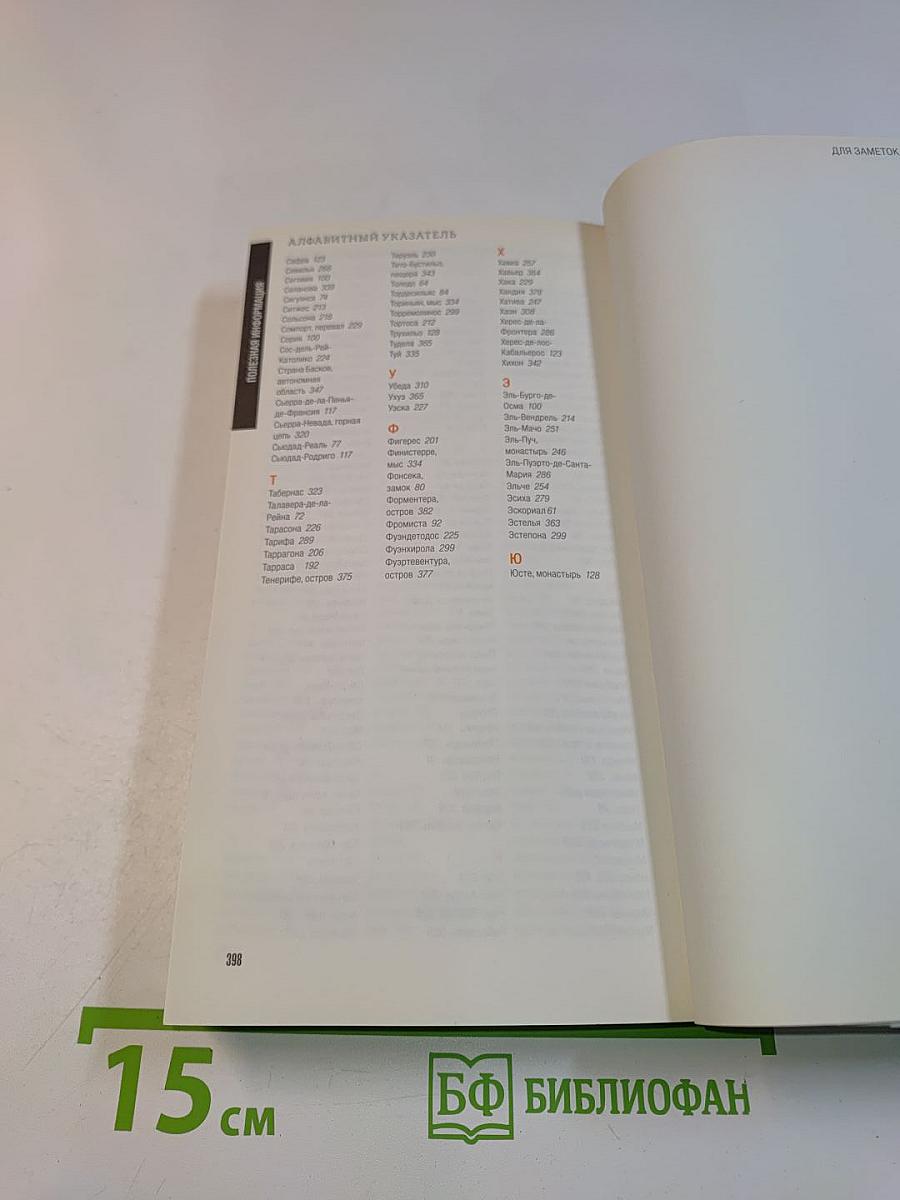 ДЛЯ ЗАМЕТОК
АЛФАВИТНЫЙ УКАЗАТЕЛЬ
ПОЛЕЗНАЯ ИНФОРМАЦИЯ
Сафра 123
Севилья 268
Сеговия 100
Селанова 339
Сигуэнса 74
Ситжес 213
Сольсона 218
Сомпорт, перевал 229
Сория 100
Сос-дель-Рей-
Католико 224
Страна Басков,
автономная
область 347
Сьерра-де-ла-Пенья-
де-Франсия 117
Сьерра-Невада, горная
цепь 320
Сьюдад-Реаль 77
Сьюдад-Родриго 117
Т
Табернас 323
Талавера-де-ла-
Рейна 72
Тарасона 226
Тарифа 289
Таррагона 206
Тарраса 192
Тенерифе, остров 375
Теруэль 230
Тито-Бустильо,
пещера 343
Толедо 64
Тордесильяс 84
Ториньян, мыс 334
Торремолинос 299
Тортоса 212
Трухильо 128
Тудела 365
Туй 335
У
Убеда 310
Ухуэ 365
Уэска 227
Ф
Фигерес 201
Финистерре,
мыс 334
Фонсека,
замок 80
Форментера,
остров 382
Фромиста 92
Фуэндетодос 225
Фуэнхирола 299
Фуэртевентура,
остров 377
Х
Хавеа 257
Хавьер 364
Хака 229
Хандия 379
Хатива 247
Хаэн 308
Херес-де-ла-
Фронтера 286
Херес-де-лос-
Кабальерос 123
Хихон 342
Э
Эль-Бурго-де-
Осма 100
Эль-Вендрель 214
Эль-Мачо 251
Эль-Пуч,
монастырь 246
Эль-Пуэрто-де-Санта-
Мария 286
Эльче 254
Эсиха 279
Эскориал 61
Эстелья 363
Эстепона 299
Ю
Юсте, монастырь 128
398
15 см
БФ БИБЛИОФАН